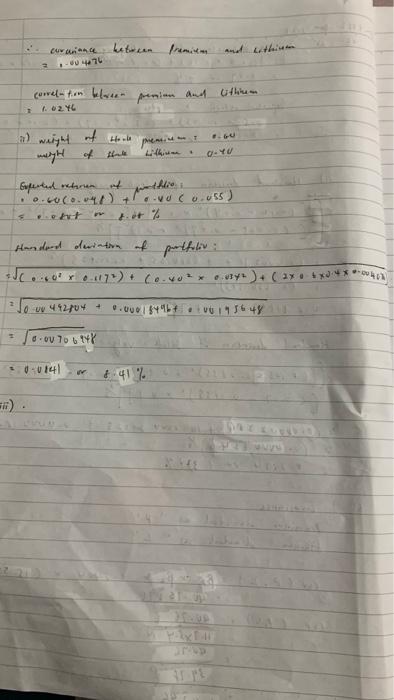 ∴ covariance between Premium and Lithium
= 0.004076
correlation between premium and Lithium
= 1.0246
ii) weight of stock premium = 0.60
weight of stock Lithium = 0.40
Expected return of portfolio:
= 0.60 (0.098) + 0.40 (0.055)
= or %
standard deviation of portfolio:
= √(0.60² x 0.117²) + (0.40² x 0.034²) + (2 x 0.6 x 0.4 x
= √0.00 492804 + 0.00018496 + 0.00195648
= √0.00706948
= 0.0841 or 8.41 %
iii).